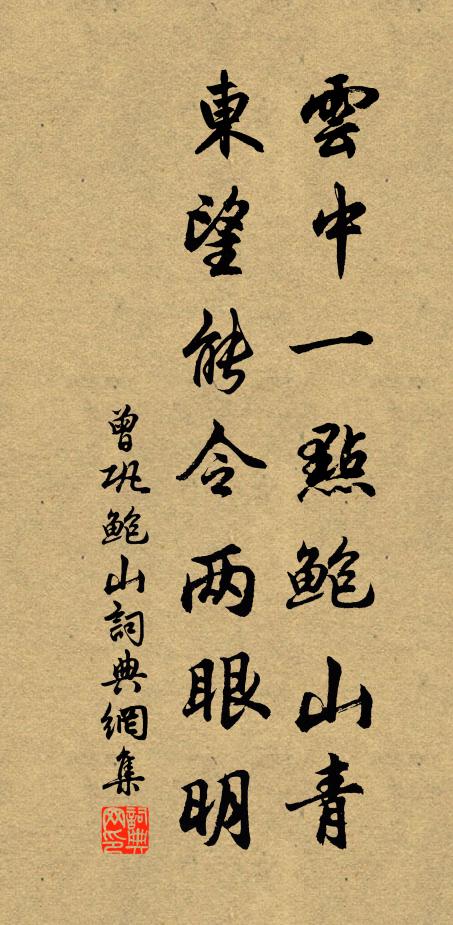 雲中一點鮑山青
東望能令两眼明
曾巩鮑山詞典網集
詞典网印